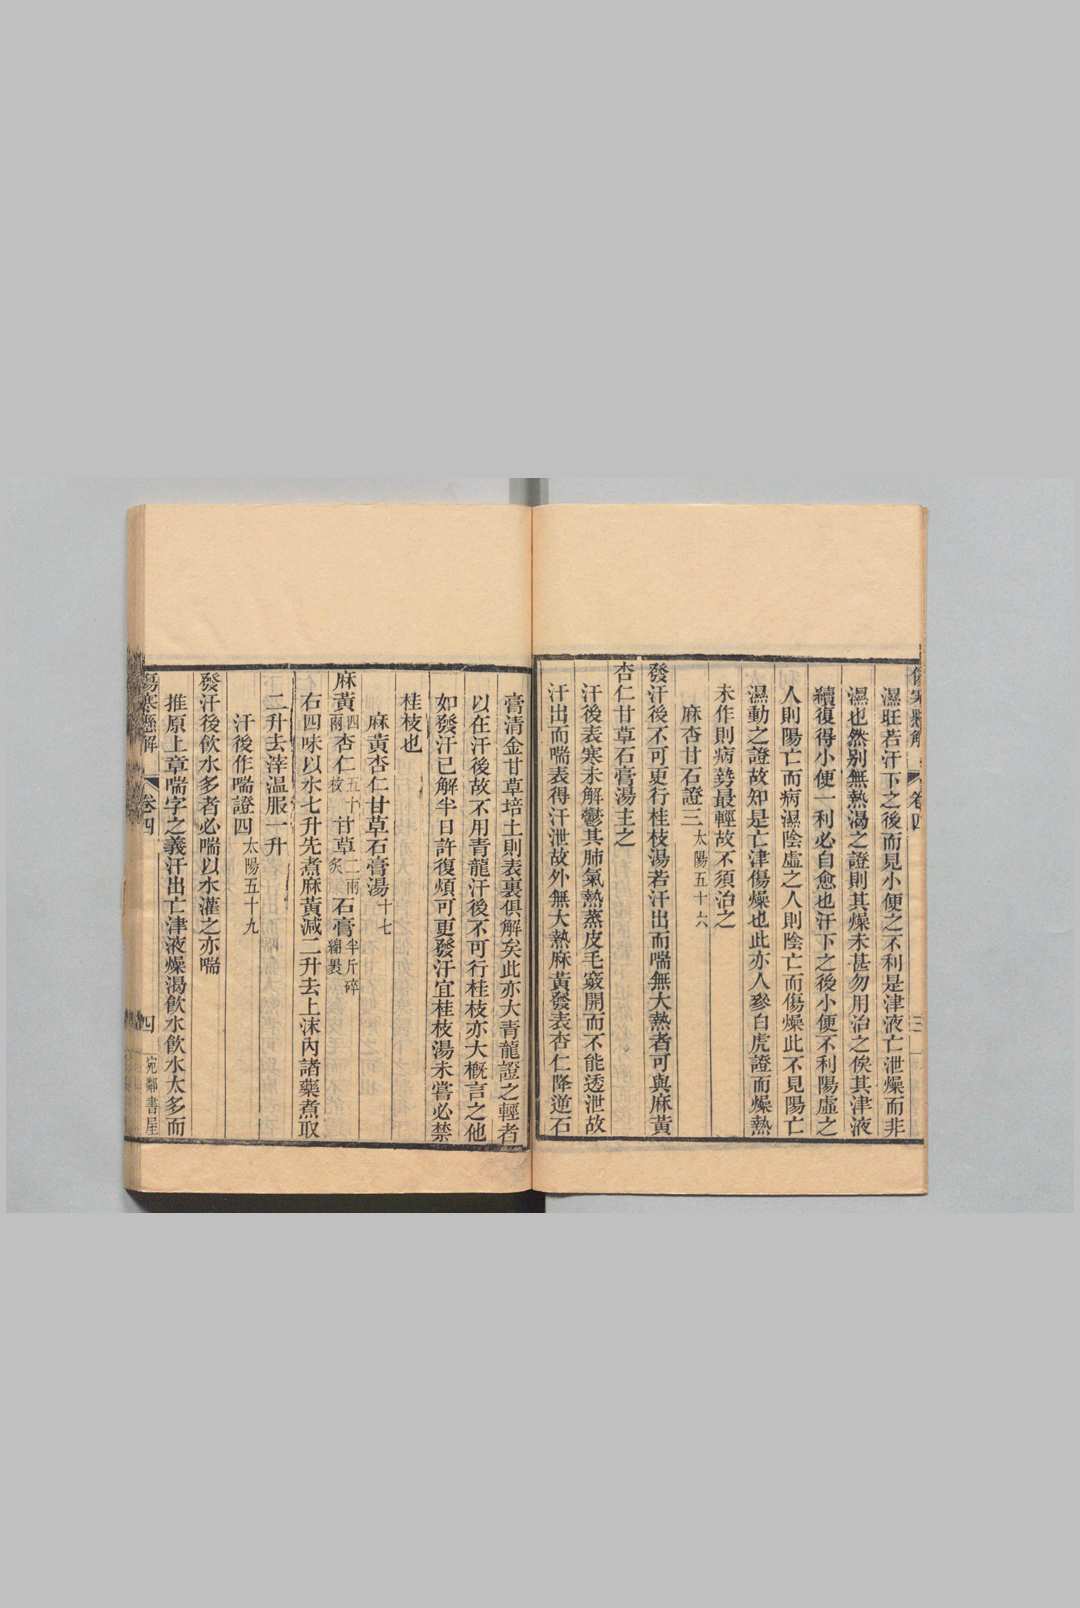 濕旺若汗下之後而見小便之不利是津液亡泄燥而非
濕也然別無熱渴之證則其燥未甚勿用治之俟其津液
續復得小便一利必自愈也汗下之後小便不利陽虛之
人則陽亡而病濕陰虛之人則陰亡而傷燥此不見陽亡
濕動之證故知是亡津傷燥也此亦人參白虎證而燥熱
未作則病勢最輕故不須治之
麻杏甘石證三太陽五十六
發汗後不可更行桂枝湯若汗出而喘無大熱者可與麻黃
杏仁甘草石膏湯主之
汗後表寒未解鬱其肺氣熱蒸皮毛竅開而不能透泄故
汗出而喘表得汗泄故外無大熱麻黃發表杏仁降逆石
膏清金甘草培土則表裏俱解矣此亦大青龍證之輕者
以在汗後故不用青龍汗後不可行桂枝亦大概言之他
如發汗已解半日許復煩可更發汗宜桂枝湯未嘗必禁
桂枝也
麻黃杏仁甘草石膏湯十七
麻黃四兩杏仁五十枚甘草二兩炙石膏半斤碎綿裹
右四味以水七升先煮麻黃減二升去上沫內諸藥煮取
二升去滓溫服一升
汗後作喘證四太陽五十九
發汗後飲水多者必喘以水灌之亦喘
推原上章喘字之義汗出亡津液燥渴飲水飲水太多而
傷寒懸解 卷四 四 宛鄰書屋